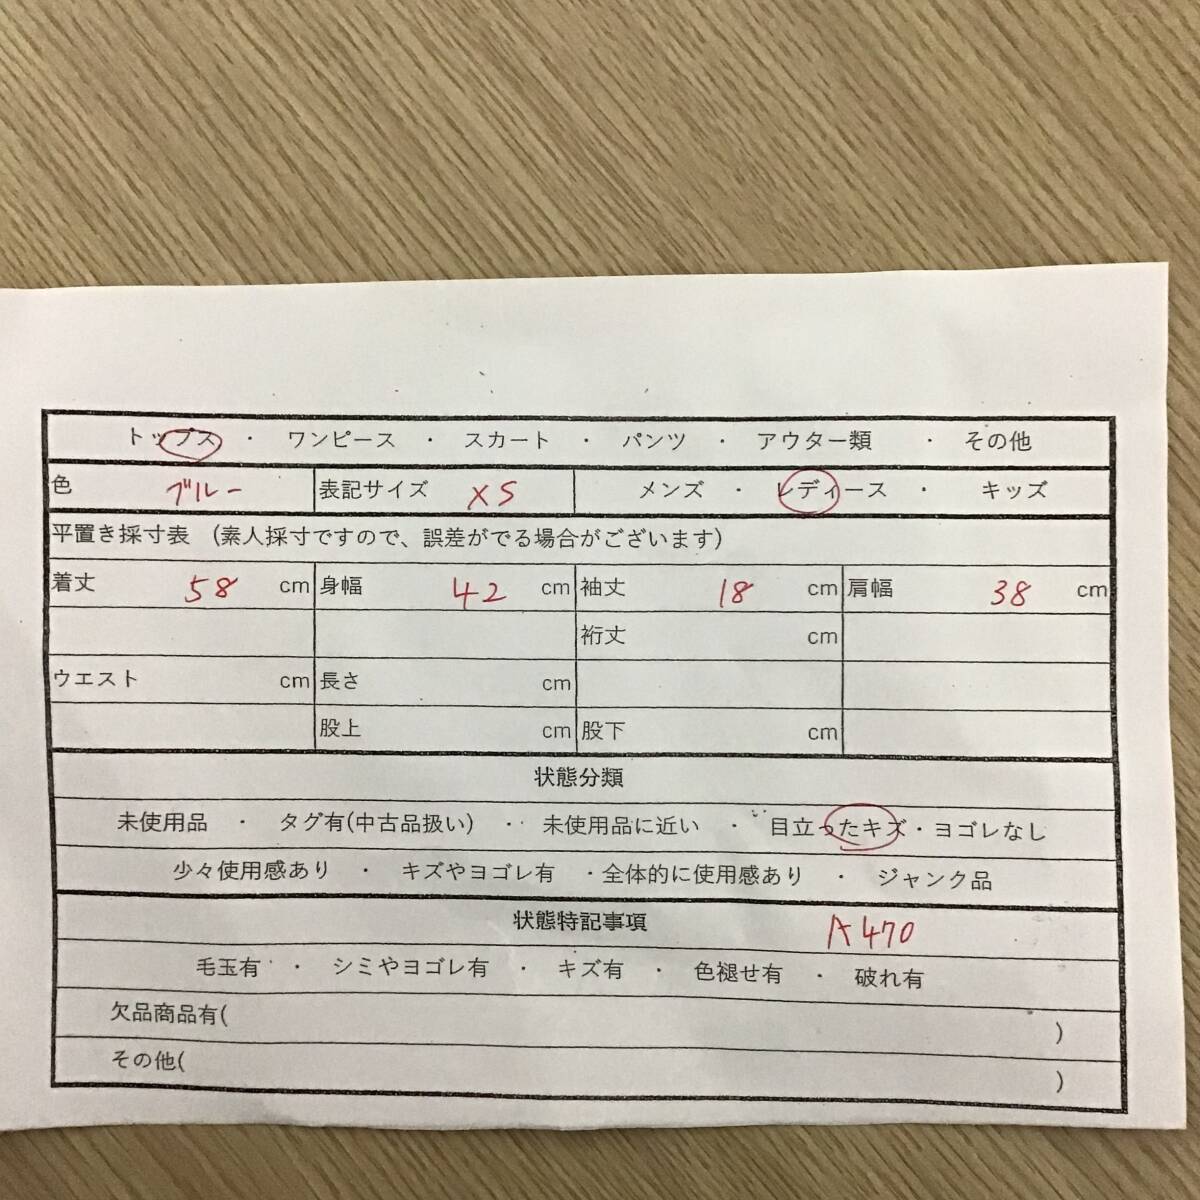 トップス ・ ワンピース ・ スカート ・ パンツ ・ アウター類 ・ その他
色 ブルー 表記サイズ XS メンズ ・ レディース ・ キッズ
平置き採寸表 (素人採寸ですので、誤差がでる場合がございます)
着丈 58 cm 身幅 42 cm 袖丈 18 cm 肩幅 38 cm
裄丈 cm
ウエスト cm 長さ cm
股上 cm 股下 cm
状態分類
未使用品 ・ タグ有(中古品扱い) ・ 未使用品に近い ・ 目立ったキズ・ヨゴレなし
少々使用感あり ・ キズやヨゴレ有 ・全体的に使用感あり ・ ジャンク品
状態特記事項 A470
毛玉有 ・ シミやヨゴレ有 ・ キズ有 ・ 色褪せ有 ・ 破れ有
欠品商品有( )
その他( )